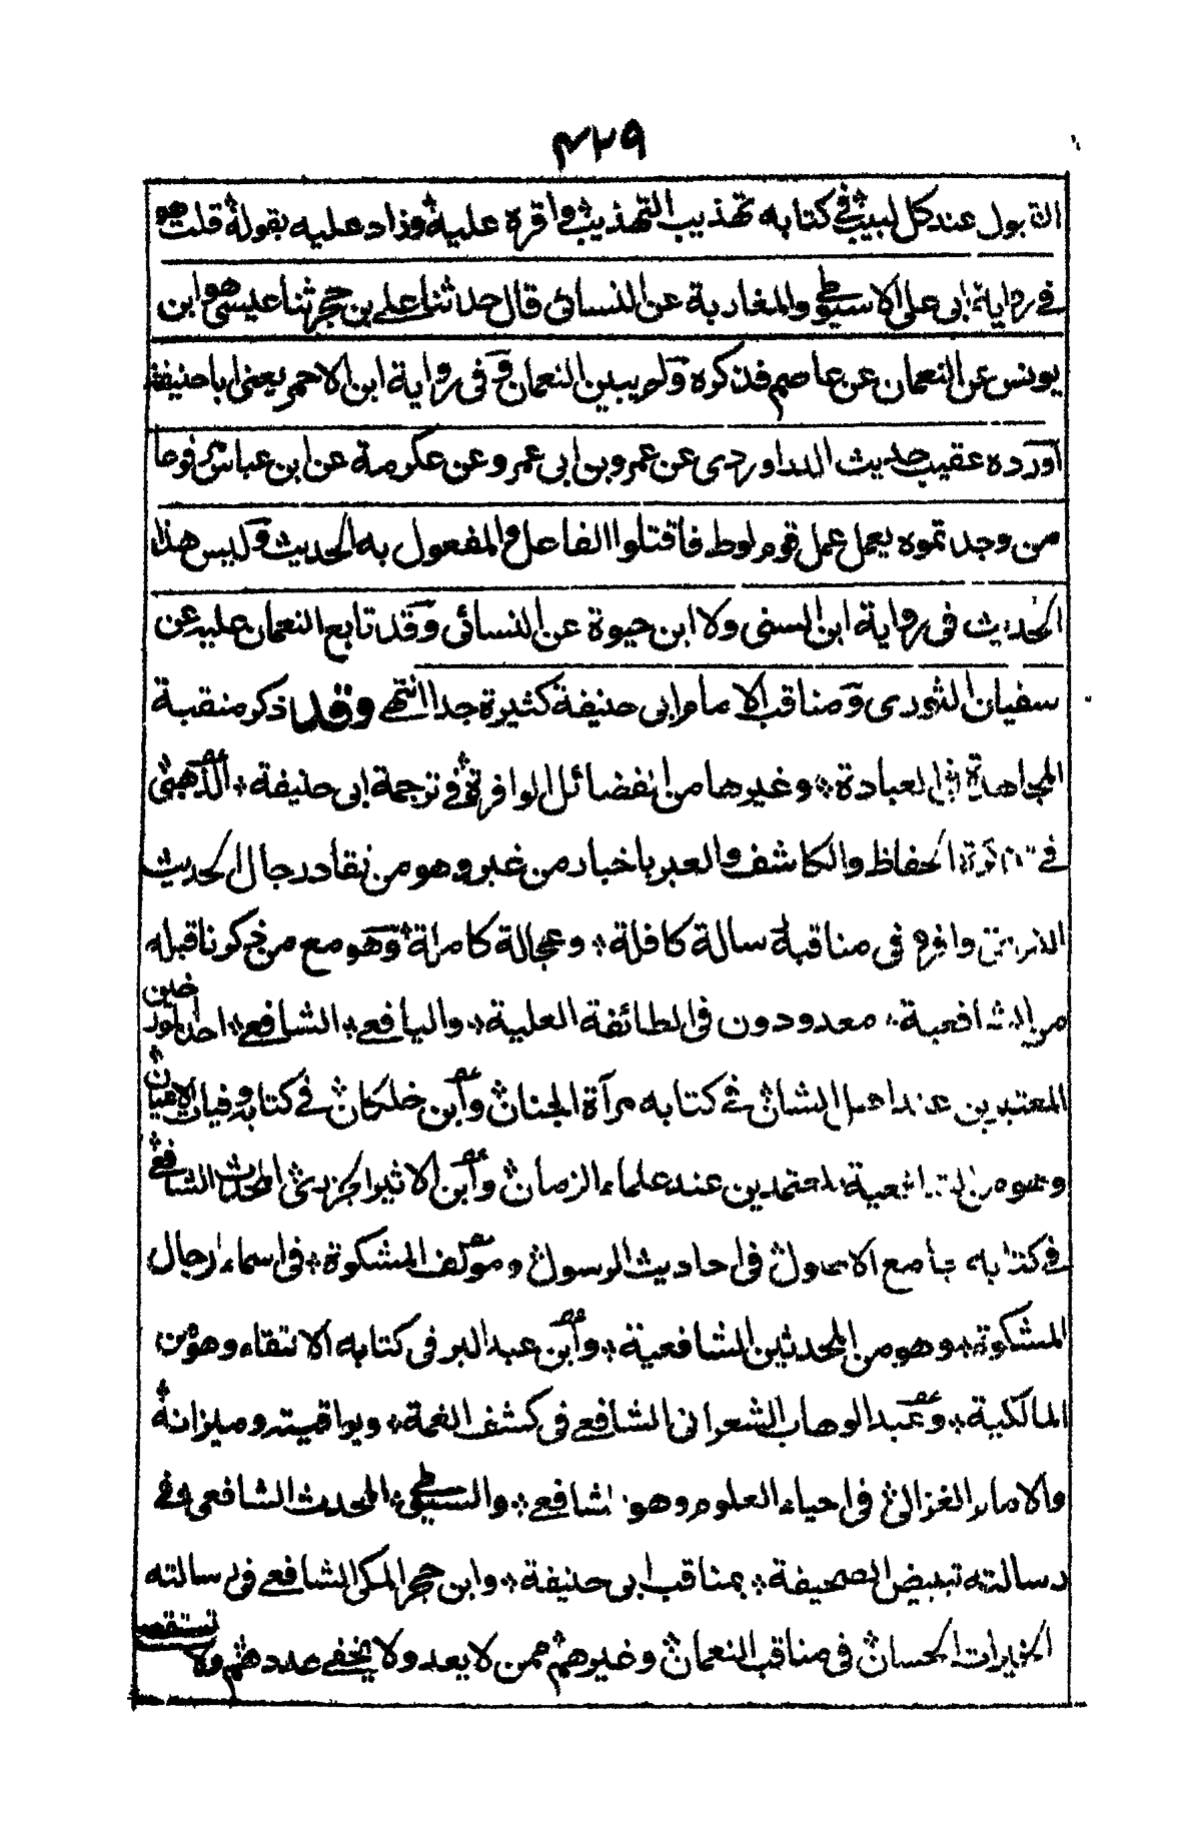 ۴۲۹
القبول عند كل لبيب في كتابه تهذيب التهذيب واقره عليه وزاد عليه بقوله قلت هو
في رواية ابى على الاسيوطي والمغاربة عن النسائى قال حدثنا على بن حجر ثنا عيسى هو ابن
يونس عن النعمان عن عاصم فذكره ولم يبين النعمان وفى رواية ابن الاحمر يعنى اباحنيفة
اورده عقيب حديث الدراوردى عن عمرو بن ابى عمرو عن عكرمة عن ابن عباس مرفوعا
من وجدتموه يعمل عمل قوم لوط فاقتلوا الفاعل والمفعول به الحديث وليس هذا
الحديث فى رواية ابن السنى ولا ابن حيوة عن النسائى وقد تابع النعمان عليه عن
سفيان الثورى ومناقب الامام ابى حنيفة كثيرة جدا انتهى وقد ذكر منقبة
المجاهدة فى العبادة وغيرها من الفضائل الوافرة في ترجمة ابى حنيفة الذهبى
في تذكرة الحفاظ والكاشف والعبر باخبار من غبر وهو من نقاد رجال الحديث
وافرد فى مناقبه رسالة كافلة وعجالة كاملة وهو مع من ذكرنا قبله
من الشافعية معدودون فى الطائفة العلية واليافعي الشافعي احد المؤرخين
المعتبرين عند اهل الشان في كتابه مرآة الجنان وابن خلكان في كتابه وفيات الاعيان
وهو من الشافعية المعتمدين عند علماء الزمان وابن الاثير الجزرى المحدث الشافعي
في كتابه جامع الاصول فى احاديث الرسول ومؤلف المشكوة فى اسماء رجال
المشكوة وهو من المحدثين الشافعية وابن عبد البر فى كتابه الانتقاء وهو من
المالكية وعبد الوهاب الشعرانى الشافعي فى كشف الغمة ويواقيته وميزانه
والامام الغزالى فى احياء العلوم وهو شافعي والسيوطي المحدث الشافعى في
رسالته تبييض الصحيفة بمناقب ابى حنيفة وابن حجر المكى الشافعي فى رسالته
الخيرات الحسان فى مناقب النعمان وغيرهم ممن لا يعد ولا يخفى عددهم ولا تستقصى